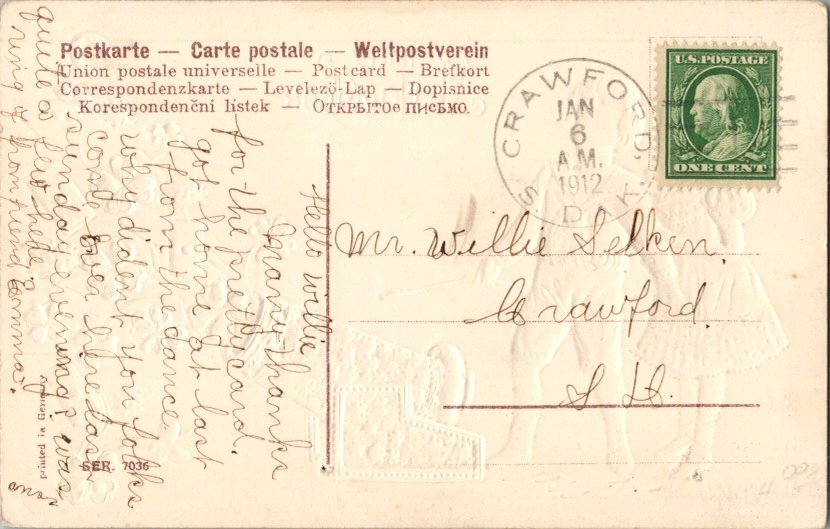 Postkarte — Carte postale — Weltpostverein
Union postale universelle — Post card — Brefkort
Correspondenzkarte — Levelező-Lap — Dopisnice
Korespondenční lístek — Открытое письмо.
CRAWFORD,
JAN
6
A.M.
1912
S. DAK.
U.S. POSTAGE
ONE CENT
Mr. Willie Selken.
Crawford.
S D.
Hello willie
Many thanks
for the pretty card.
got home at last
from the dance.
why dident you folks
come over here last
sunday evening? was
quite a few here
ring of from friend Emma.
printed in Germany
SER. 7036